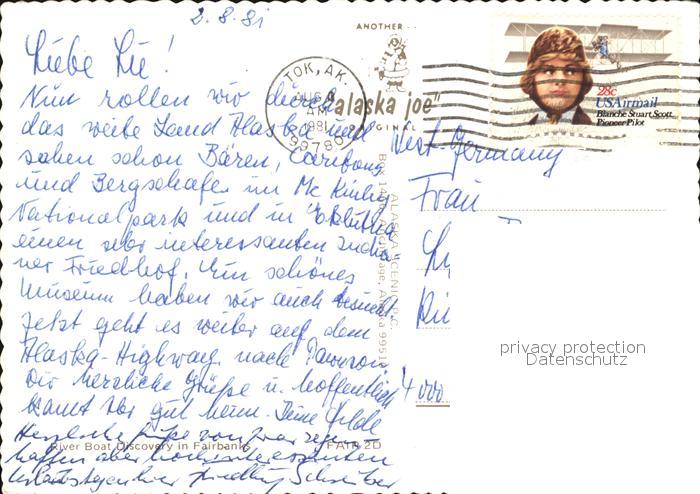 2.8.81
Liebe Lie!
Nun rollen wir durch
das weite Land Alaska und
sahen schon Bären, Caribous
und Bergschafe im Mc Kinley
Nationalpark und in Eklutna
einen sehr interessanten India-
ner Friedhof. Ein schönes
Museum haben wir auch besucht.
Jetzt geht es weiter auf dem
Alaska-Highway nach Dawson.
Dir herzliche Grüße u. hoffentlich
kamt Ihr gut heim. Deine
Herzliche Grüße von
aber hochinteressanten
River Boat Discovery in Fairbanks
ANOTHER
"alaska joe"
ORIGINAL
TOK, AK.
AUG
AM
1981
99780
ALASKA SCENIC
Anchorage, Alaska 9951
28c
USAirmail
Blanche Stuart Scott
Pioneer Pilot
West-Germany
Frau
4000
privacy protection
Datenschutz